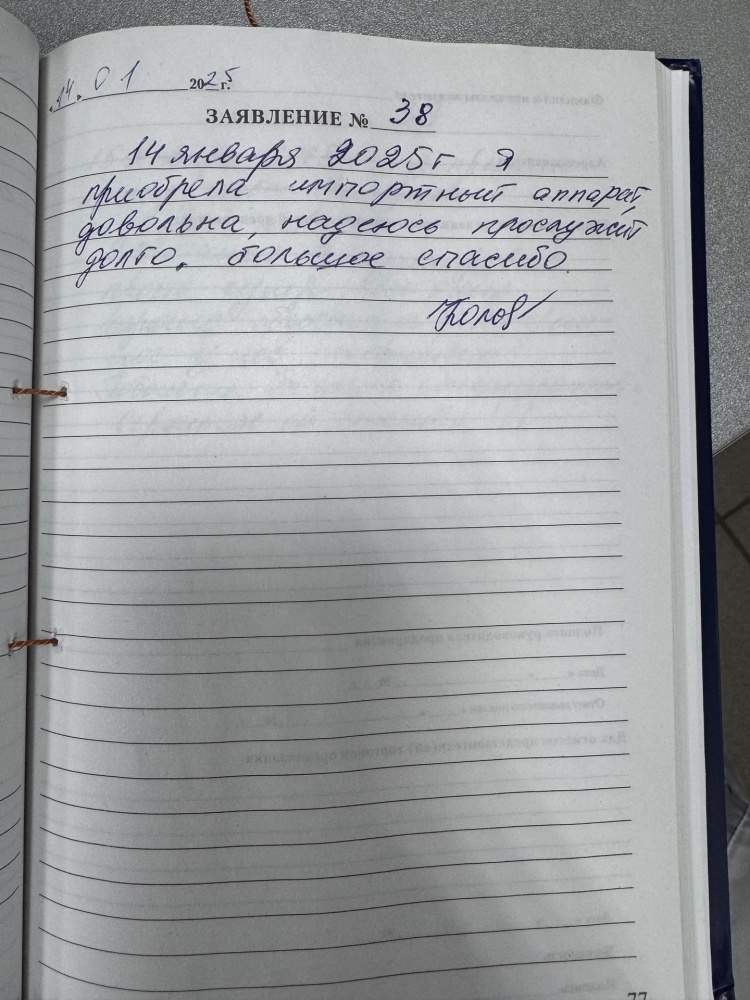 «14» 01 2025 г.
ЗАЯВЛЕНИЕ № 38
14 января 2025г я
приобрела импортный аппарат,
довольна, надеюсь прослужит
долго, большое спасибо.
77